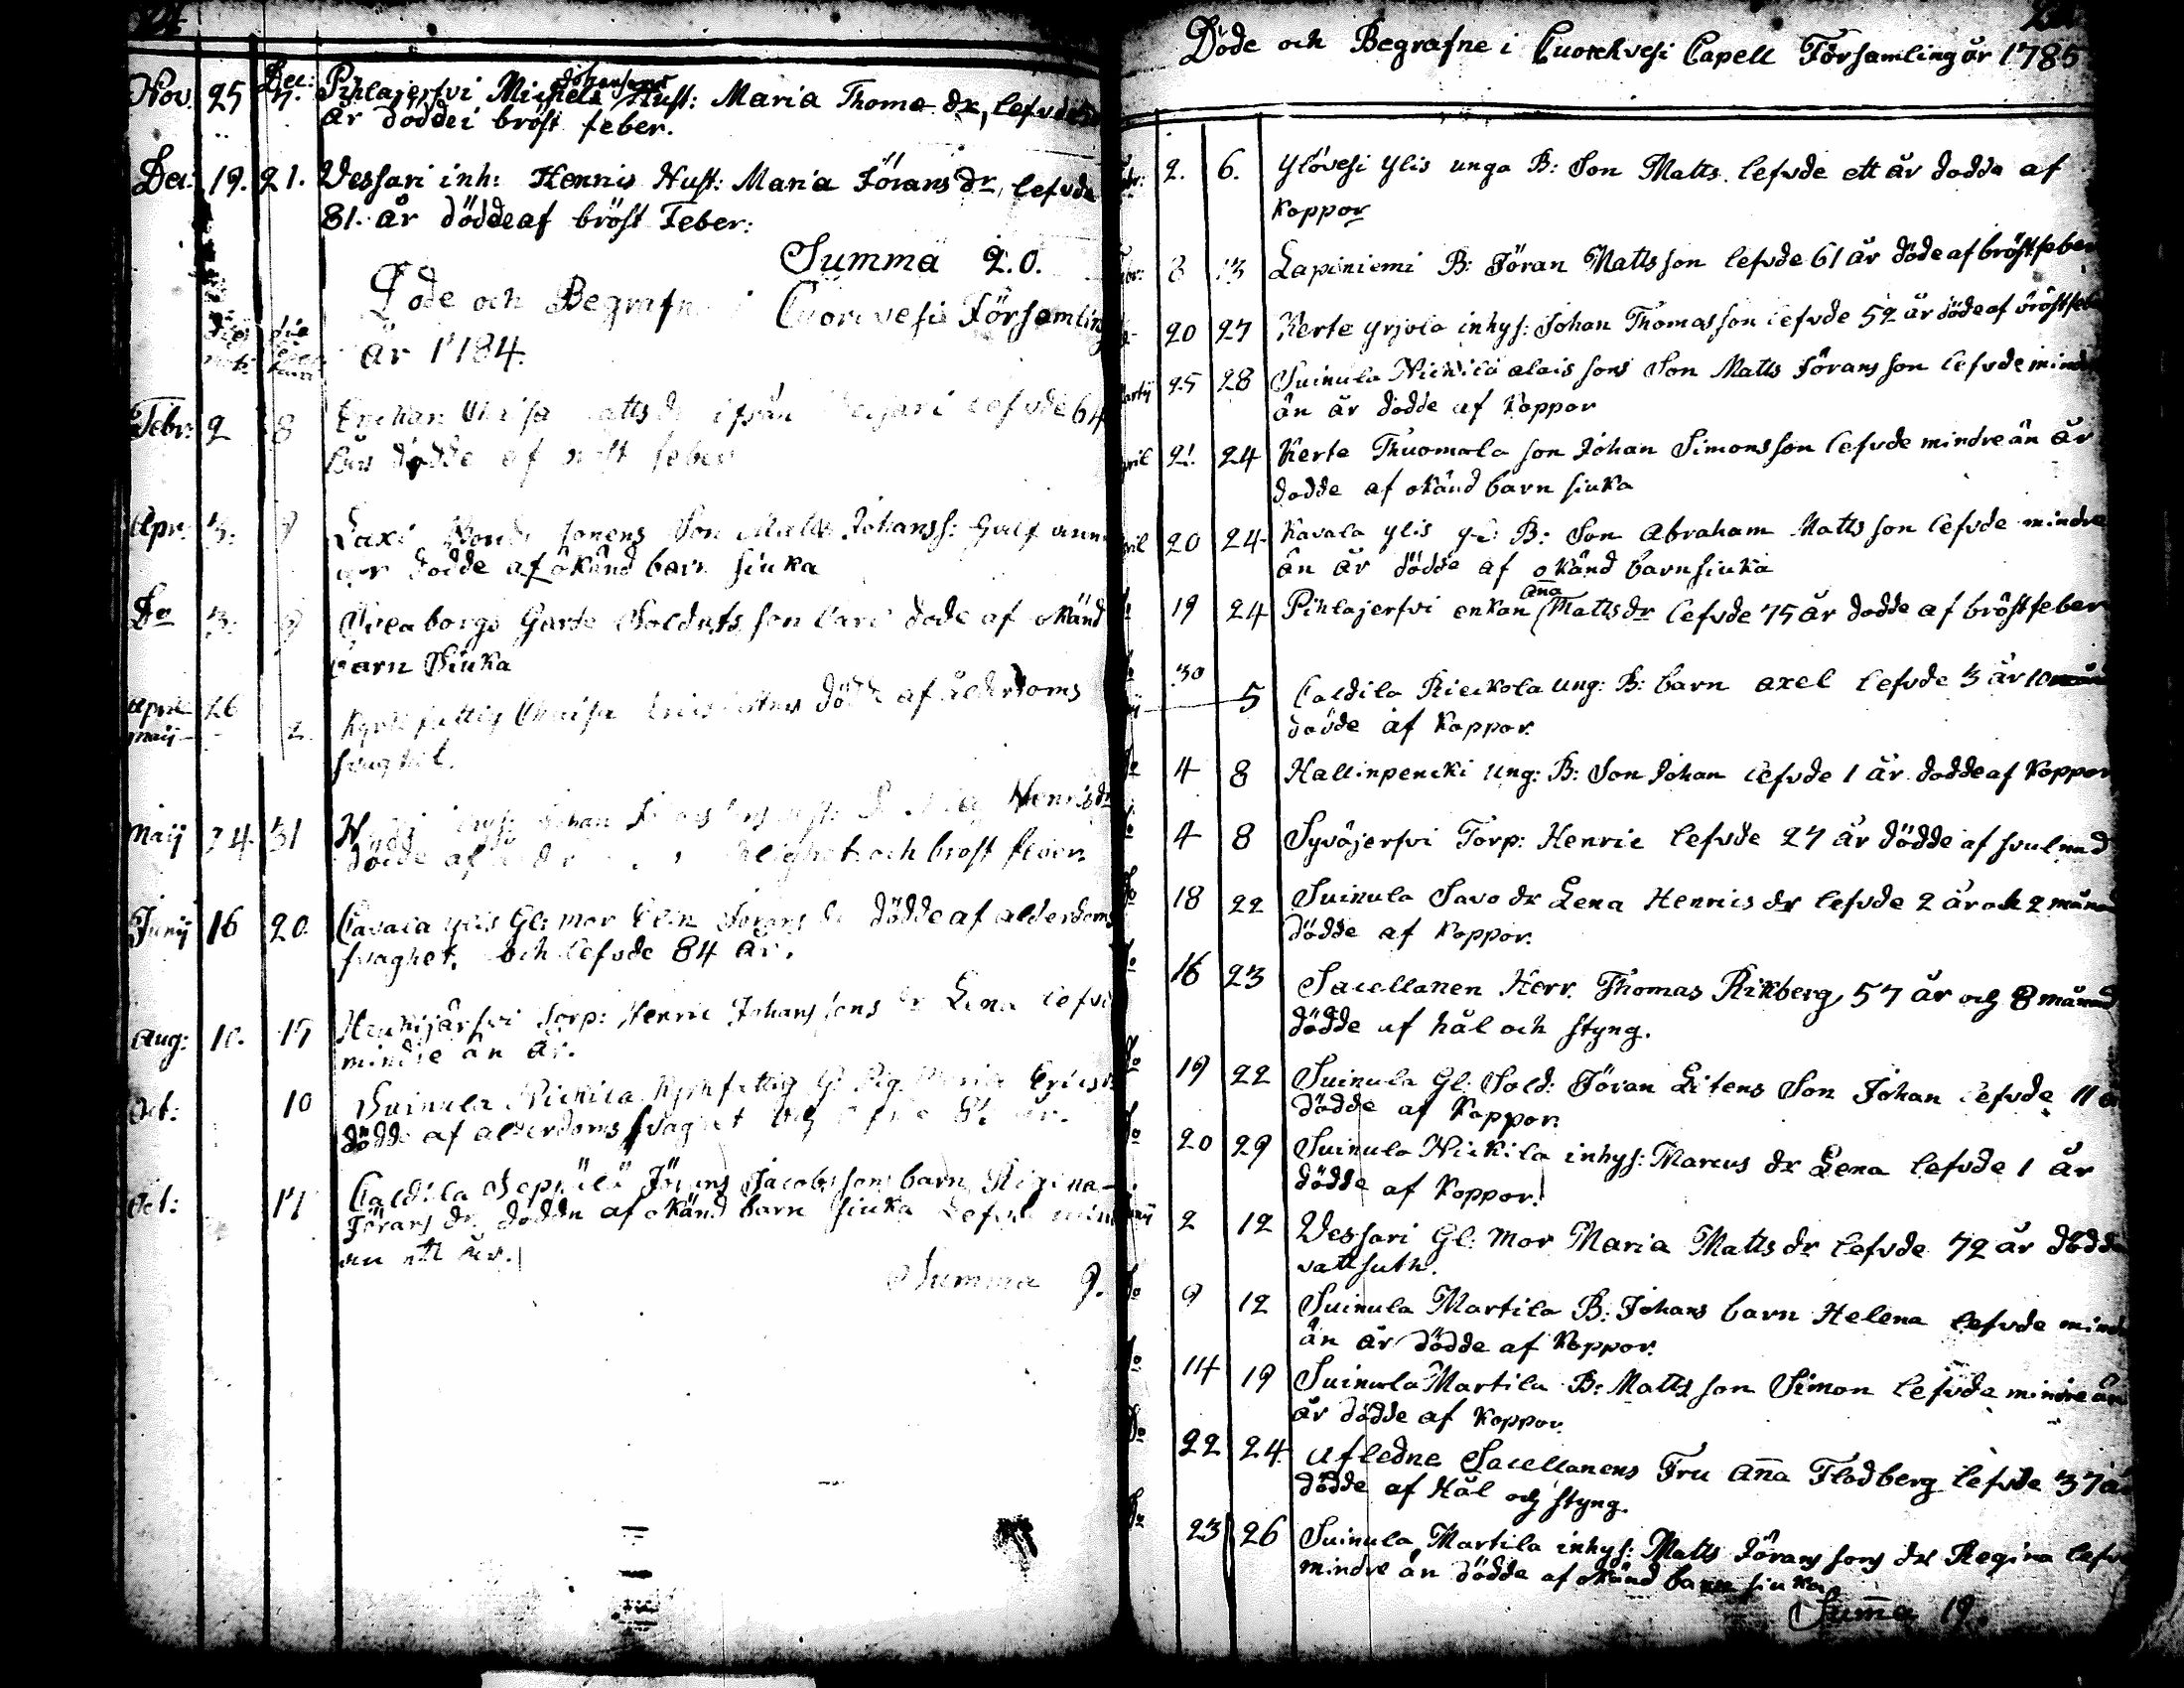 Nov. 25 Dec: 7. Pihlajerfvi Michels Johansons Hust: Maria Thome dr, lefvde
år dödde i bröst feber.
Dec: 19. 21. Vessari inh: Henris Hust: Maria Jörans dr, lefvde
81. år dödde af bröst Feber:
Summa 20.
Döde och Begrafne i Cuorevesi Församling
år 1784.
Febr: 2 8 Enckan Maisa Matts dr ifrån Vessari lefvde 64
år dödde af bröst feber
Apr: 3. 9 Laxi Bonde sonens Son Matts Johanss: half annu
år dödde af okänd barn siuka
Do 3. 9 Sveaborgs Garde Soldats son Carl döde af okänd
barn Siuka
April 26
Maij 2. Kyrk fattig Maisa dödde af ålderdoms
svaghet.
Maij 24. 31 inhys: Johan Henrics dr
dödde af och bröst feber
Junij 16 20. Cavala ylis Gl: mor Elin Jörans dr dödde af alderdoms
svaghet. och lefvde 84 år.
Aug: 10. 15 Torp: Henric Johans sons dr Lena lefvde
mindre än år.
Oct: 10 Suinula Nickila Kyrk fattig G: Pig. Maria Erics
dödde af alderdoms svaghet
Oct: 17 Caldila Seppälä Jörans Jacobs sons barn Regina
Jörans dr dödde af okänd barn siuka Lefvde min
än ett år.
Summa 9.
Döde och Begrafne i Cuorehvesi Capell Församling år 1785
2. 6. Ylövesi Ylis unga B: Son Matts lefvde ett år dödda af
koppor
Febr: 8 13 Lapiniemi B: Jöran Matts son lefvde 61 år döde af bröst feber
20 27 Kerte Yrjola inhys: Johan Thomas son lefvde 52 år döde af bröst feb
Martij 25 28 Suinula Nickila alais sons Son Matts Jörans son lefvde mindr
än år dödde af koppor
April 21 24 Kerte Thuomola son Johan Simons son lefvde mindre än år
dödde af okänd barn siuka
April 20 24 Kavala ylis gl: B: Son Abraham Matts son lefvde mindre
än år dödde af okänd barn siuka
19 24 Pihlajerfvi enkan Ana Matts dr lefvde 75 år dödde af bröst feber
30
5 Caldila Rieckola Ung: B: barn axel lefvde 3 år 10 mån
dödde af koppor.
Do 4 8 Hallinpencki Ung: B: Son Johan lefvde 1 år dödde af koppor
Do 4 8 Syväjerfvi Torp: Henric lefvde 27 år dödde af svulnad
Do 18 22 Suinula Savo dr Lena Henrics dr lefvde 2 år och 2 månad
dödde af koppor.
Do 16 23 Sacellanen Herr. Thomas Rikberg, 57 år och 8 månad
dödde af hål och styng.
Do 19 22 Suinula Gl: Sold: Jöran Litens Son Johan lefvde 11 år
dödde af koppor.
Do 20 29 Suinula Nickila inhys: Marcus dr Lena lefvde 1 år
dödde af koppor.
Junij 2 12 Vessari Gl: Mor Maria Matts dr lefvde 72 år dödde
vattsuth.
Do 9 12 Suinula Martila B: Johans barn Helena lefvde mindr
än år dödde af koppor.
Do 14 19 Suinula Martila B: Matts son Simon lefvde mindre än
år dödde af koppor.
Do 22 24. Afledne Sacellanens Fru Ana Flodberg lefvde 37 år
dödde af Hål och styng.
Do 23 26 Suinula Martila inhys: Matts Jörans sons dr Regina lefv
mindre än dödde af okänd barn siuka
Suma 19.